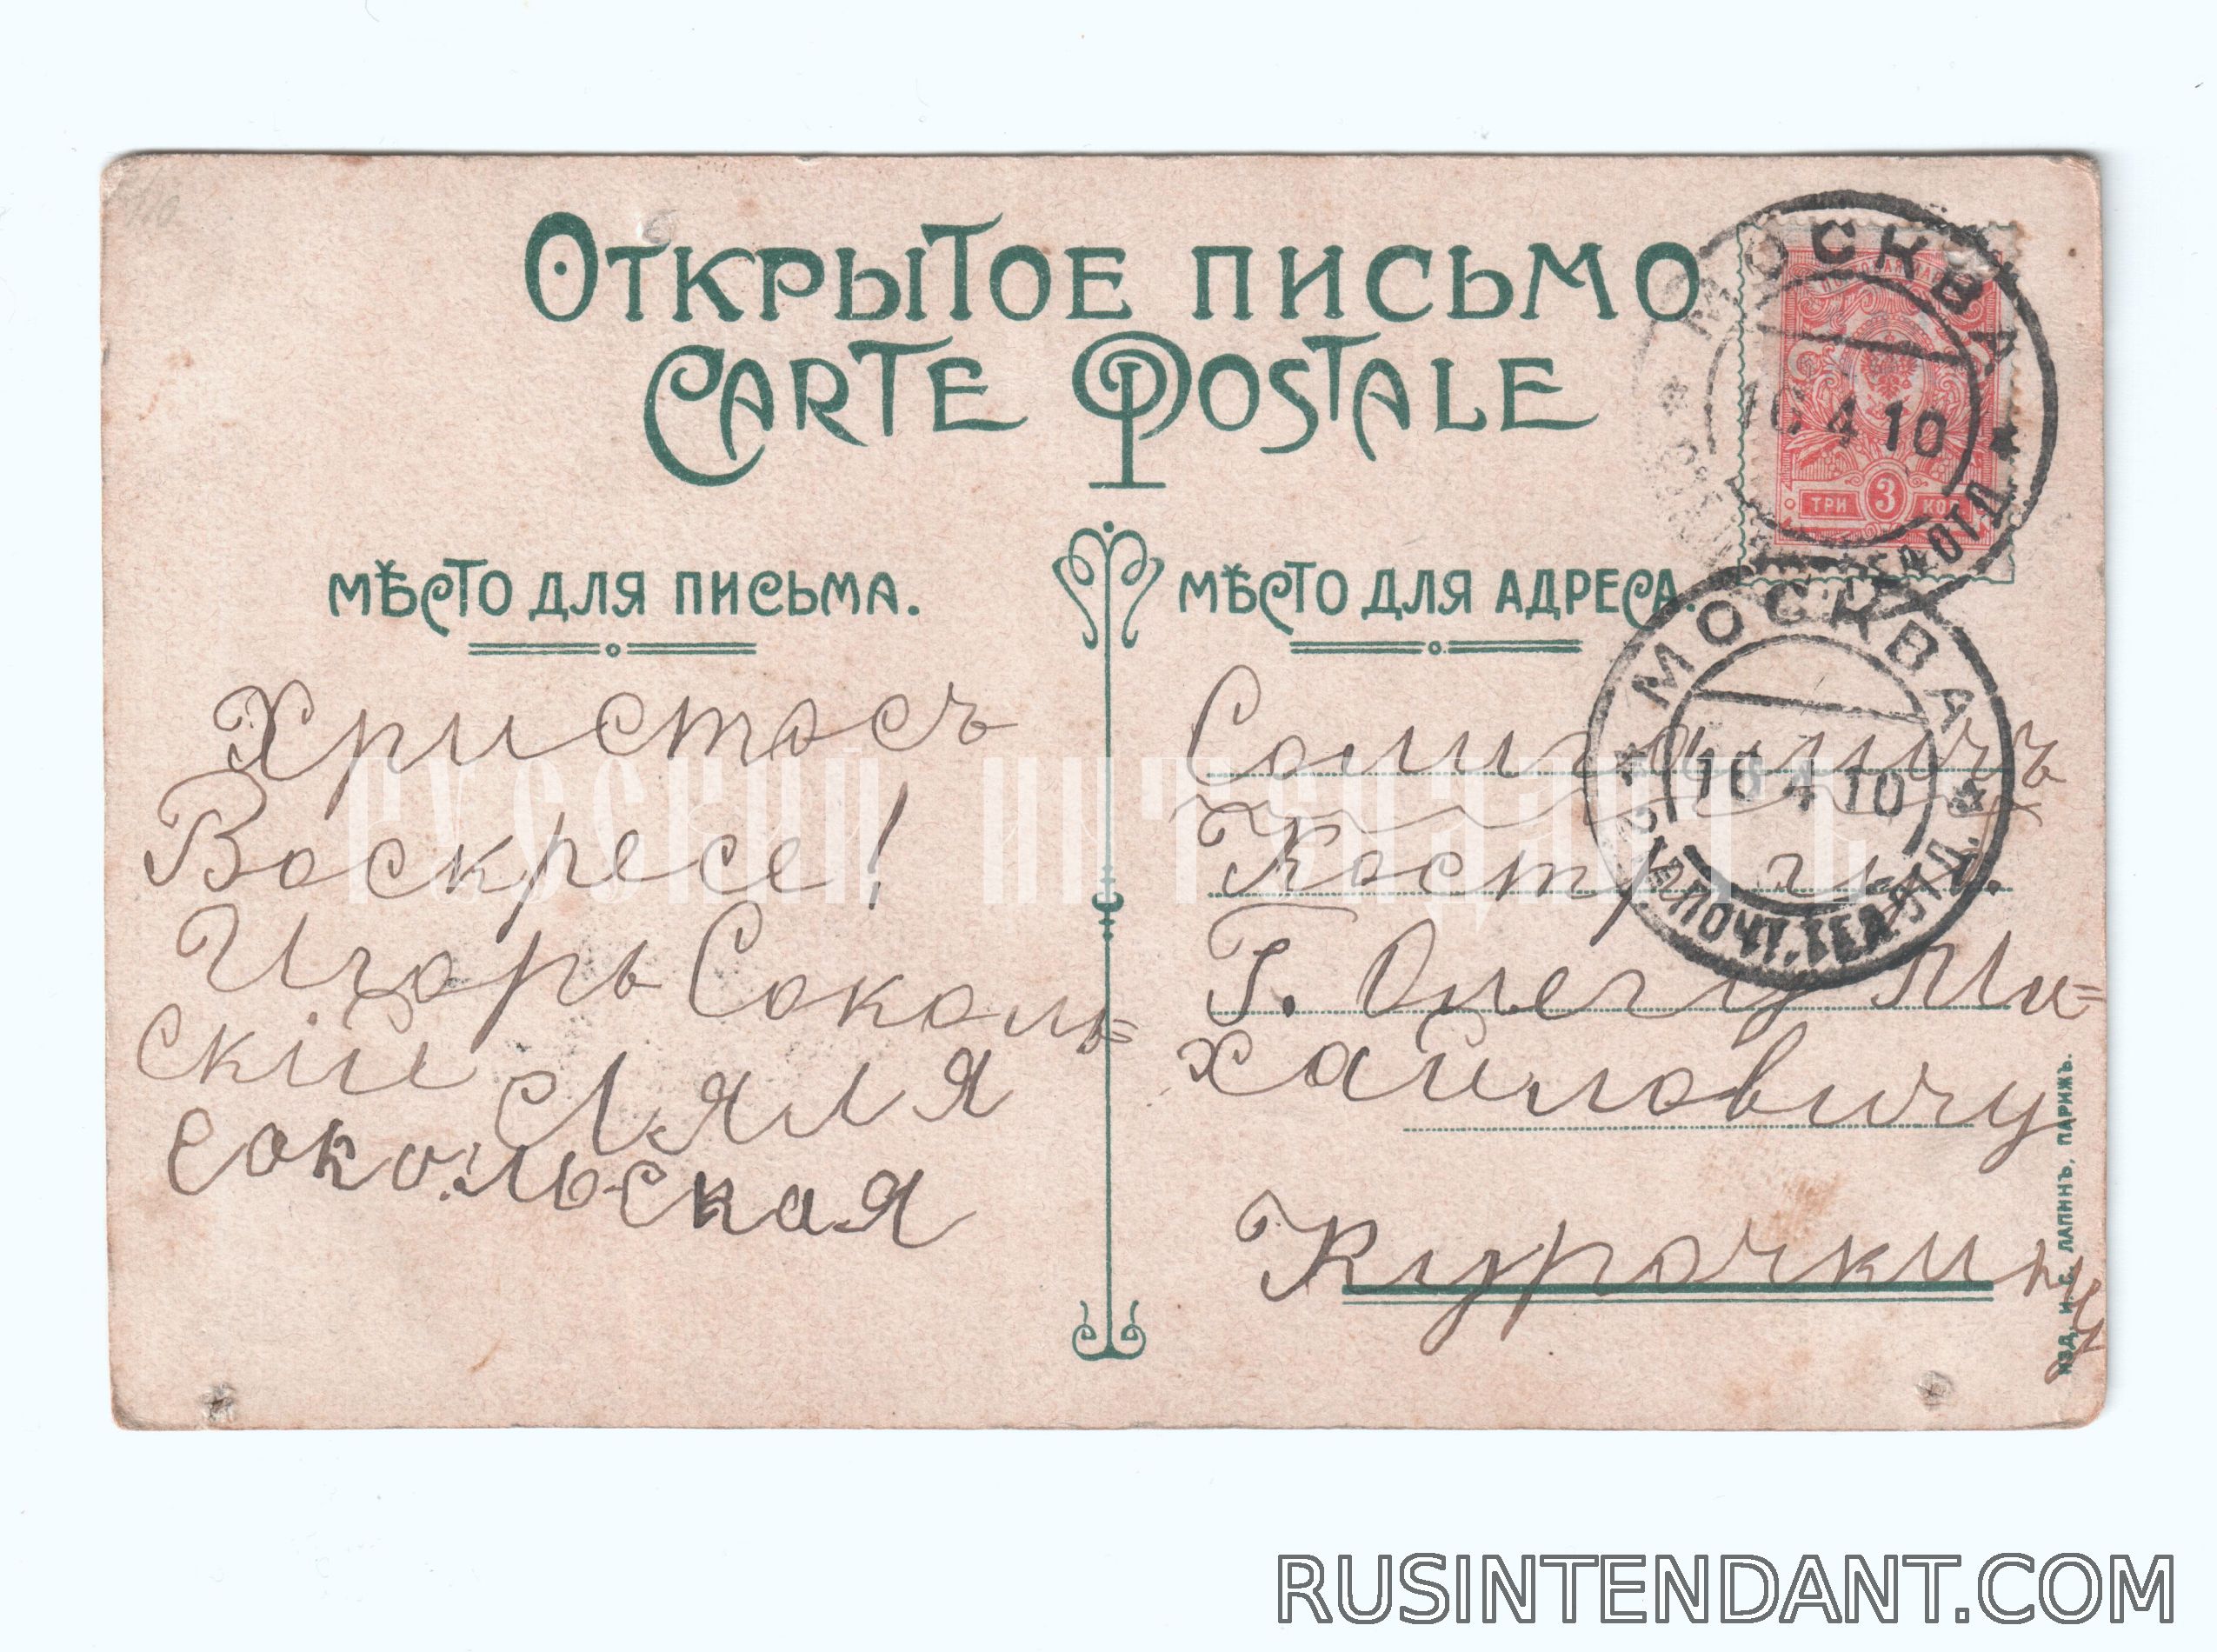 ОТКРЫТОЕ ПИСЬМО
CARTE POSTALE
МОСКВА
16 4 10
ТРИ 3 КОП
МѢСТО ДЛЯ ПИСЬМА.
МѢСТО ДЛЯ АДРЕСА.
Христосъ
Воскресе!
Игорь Соколь=
скій Ляля
Сокольская
МОСКВА
16 4 10
Солигаличъ
Костр. г.
Г. Олегу Ми=
хайловичу
Курочкину
ИЗД. И. С. ЛАПИНЪ, ПАРИЖЪ.
РУССКИЙ ИНТЕНДАНТЪ
RUSINTENDANT.COM